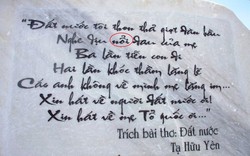 "Đất nước tôi thon thả giọt đàn bầu
Nghe dịu nỗi đau của mẹ
Ba lần tiễn con đi
Hai lần khóc thầm lặng lẽ
Các anh không về mình mẹ lặng im...
Xin hát về người đất nước ơi!
Xin hát về mẹ Tổ quốc ơi..."
Trích bài thơ: Đất nước
Tạ Hữu Yên